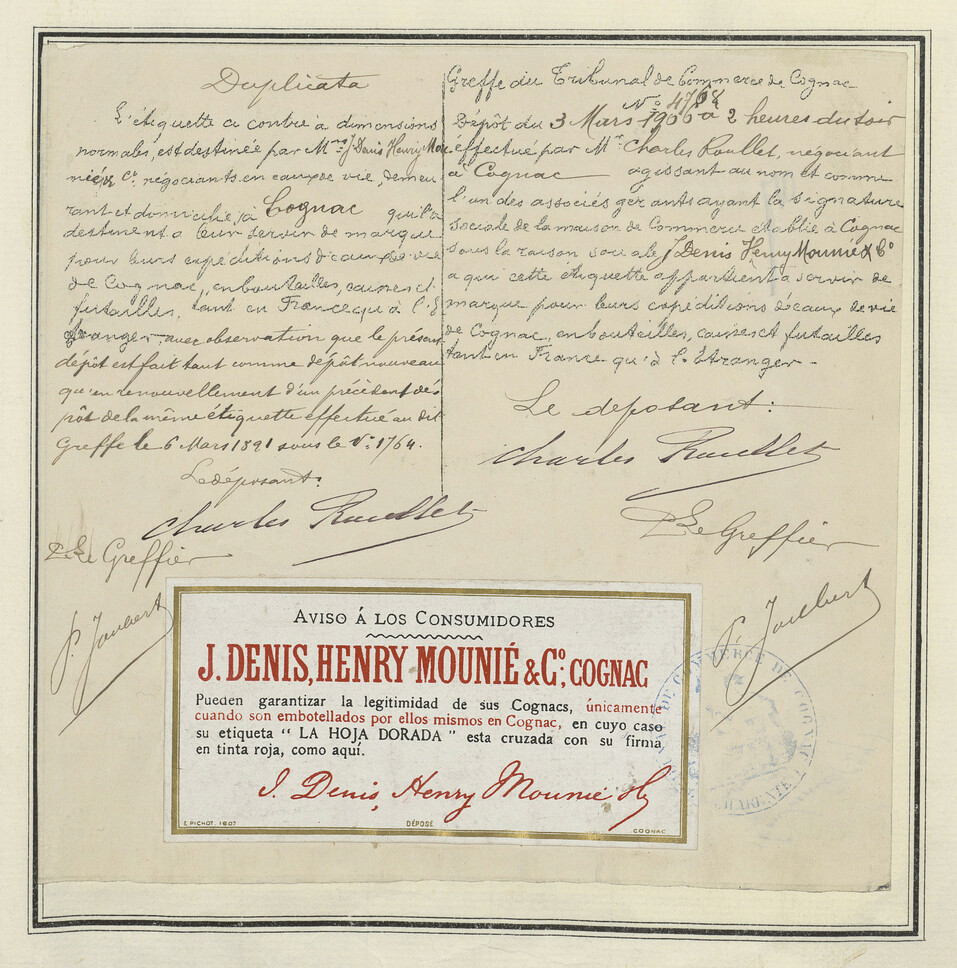 Duplicata
L'étiquette ci contre à dimensions
normales, est destinée par Mrs J Denis Henry Mou
nié & Co, négociants en eaux de vie, demeu
rant et domiciliés à Cognac qui la
destinent à leur servir de marque
pour leurs expéditions d'eaux de vie
de Cognac, en bouteilles, caisses et
futailles, tant en France qu'à l'É
tranger, avec observation que le présent
dépôt est fait tant comme dépôt nouveau
qu'en renouvellement d'un précédent dé
pôt de la même étiquette effectué au dit
Greffe le 6 Mars 1891 sous le No 1764.
Le déposant:
Charles Roullet
Le Greffier
P. Joubert
Greffe du Tribunal de Commerce de Cognac
No 4768
Dépôt du 3 Mars 1906 à 2 heures du soir
effectué par Mr Charles Roullet, négociant
à Cognac agissant au nom et comme
l'un des associés gérants ayant la signature
sociale de la maison de Commerce établie à Cognac
sous la raison sociale J Denis Henry Mounié & Co
à qui cette étiquette appartient à servir de
marque pour leurs expéditions d'eaux de vie
de Cognac, en bouteilles, caisses et futailles
tant en France qu'à l'Étranger -
Le déposant:
Charles Roullet
Le Greffier
P. Joubert
AVISO Á LOS CONSUMIDORES
J. DENIS, HENRY MOUNIÉ & Co., COGNAC
Pueden garantizar la legitimidad de sus Cognacs, únicamente
cuando son embotellados por ellos mismos en Cognac, en cuyo caso
su etiqueta " LA HOJA DORADA " esta cruzada con su firma
en tinta roja, como aquí.
J. Denis, Henry Mounié & Co
E. PICHOT. 1607 DÉPOSÉ COGNAC
DE COMMERCE DE COGNAC
CHARENTE